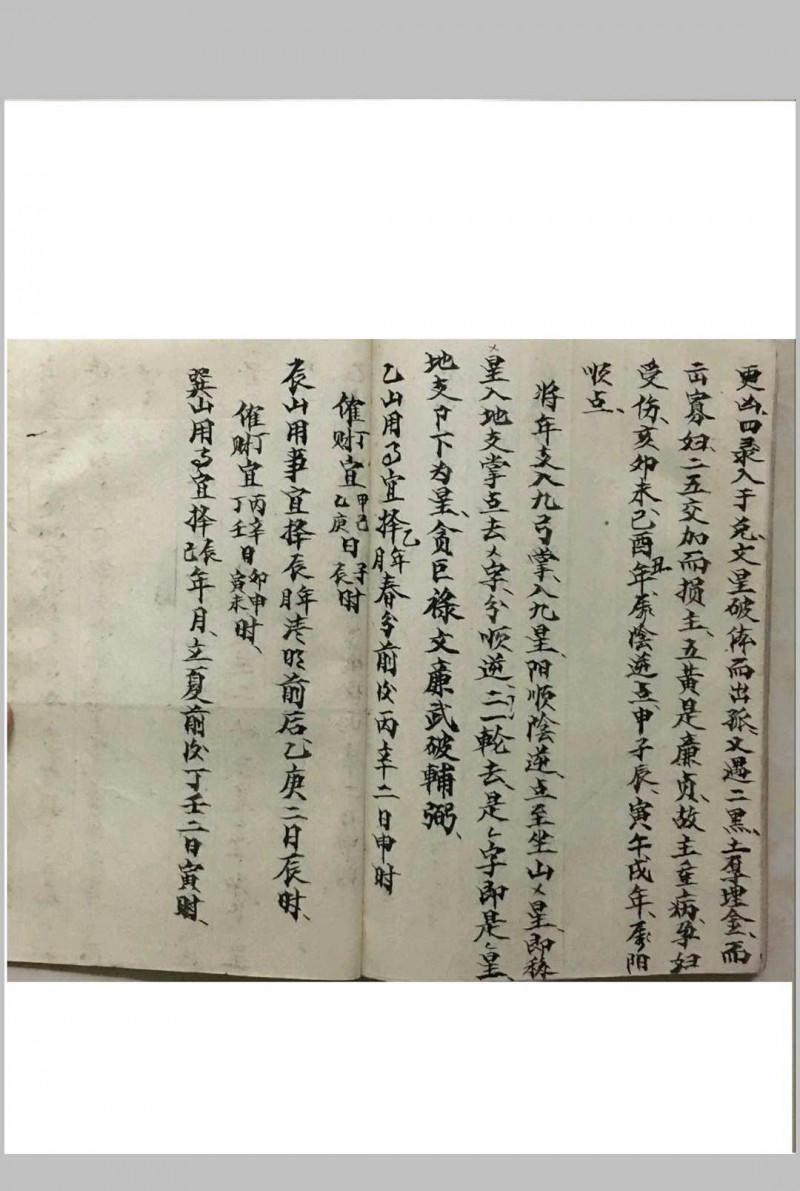 更凶、四录入于兑、文星破体而出孤、又遇二黑、土重埋金、而
出寡妇、二五交加而损主、五黄是廉贞、故主重病、孕妇
受伤、亥卯未、巳酉丑年、属陰逆点、申子辰、寅午戌年、属阳
顺点、
将年支入九弓掌、入九星、阳顺陰逆、点至坐山乂星、即称
乂星入地支掌点去、乂字、分顺逆、二一輪去、是乂字即是乂星、
地支卩下为星、贪巨祿文廉武破輔弼、
乙山用事宜择乙年月春分前後丙辛二日申时
催丁财宜甲己乙庚日子辰时
辰山用事宜择辰年月清明前后、乙庚二日辰时、
催丁财宜丙辛丁壬日卯申寅未时、
巽山用事宜择辰巳年月、立夏前後丁壬二日寅时、